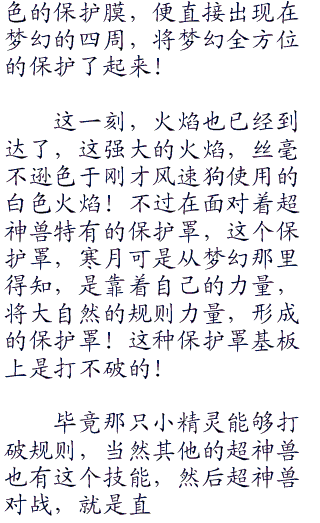 色的保护膜，便直接出现在
梦幻的四周，将梦幻全方位
的保护了起来！
这一刻，火焰也已经到
达了，这强大的火焰，丝毫
不逊色于刚才风速狗使用的
白色火焰！不过在面对着超
神兽特有的保护罩，这个保
护罩，寒月可是从梦幻那里
得知，是靠着自己的力量，
将大自然的规则力量，形成
的保护罩！这种保护罩基板
上是打不破的！
毕竟那只小精灵能够打
破规则，当然其他的超神兽
也有这个技能，然后超神兽
对战，就是直